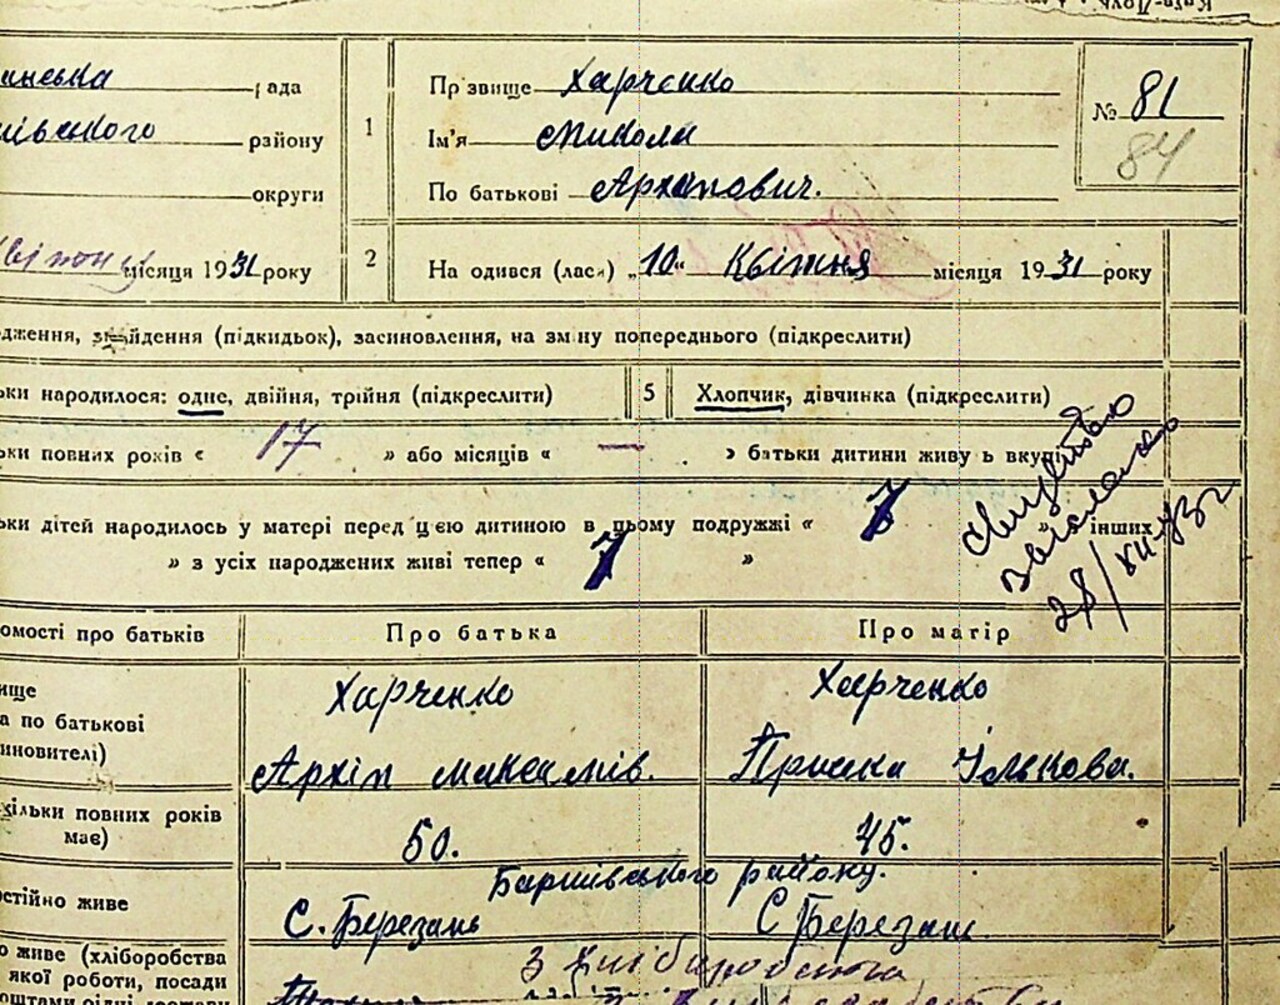 рада
району
округи
місяця 1931 року
1
Прзвище Харченко
Ім'я Микола
По батькові Архипович.
№ 81
84
2
На одився (лась) „10“ Квітня місяця 1931 року
дження, знайдення (підкидьок), засиновлення, на зміну попереднього (підкреслити)
ьки народилося: одне, двійня, трійня (підкреслити)
5
Хлопчик, дівчинка (підкреслити)
ьки повних років « 17 » або місяців « — » батьки дитини живуть вкупі
ьки дітей народилось у матері перед цією дитиною в цьому подружжі « 7 » інших
» з усіх народжених живі тепер « 7 »
28/XII-73г
омості про батьків
Про батька
Про матір
ище
а по батькові
иновителі)
Харченко
Архіп Максимів.
Харченко
Пріська Ількова.
кільки повних років
має)
50.
45.
остійно живе
Баришівського району.
С. Березань
С Березань.
о живе (хліборобства
якої роботи, посади
З хліборобства